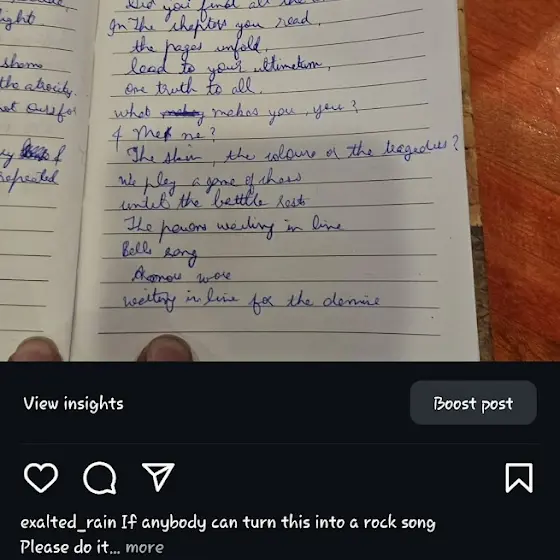 Did you find all the
light
In The chapters you read,
the pages unfold,
shame
lead to your ultimatum,
the atrocity.
one truth to all.
not ours for
what makes you, you?
& Me me?
The skin, the colour or the tragedies?
repeated
We play a game of chess
until the battle rests
The pawns waiting in line
Bells song
wore
waiting in line for the demise
View insights
Boost post
exalted_rain If anybody can turn this into a rock song
Please do it... more